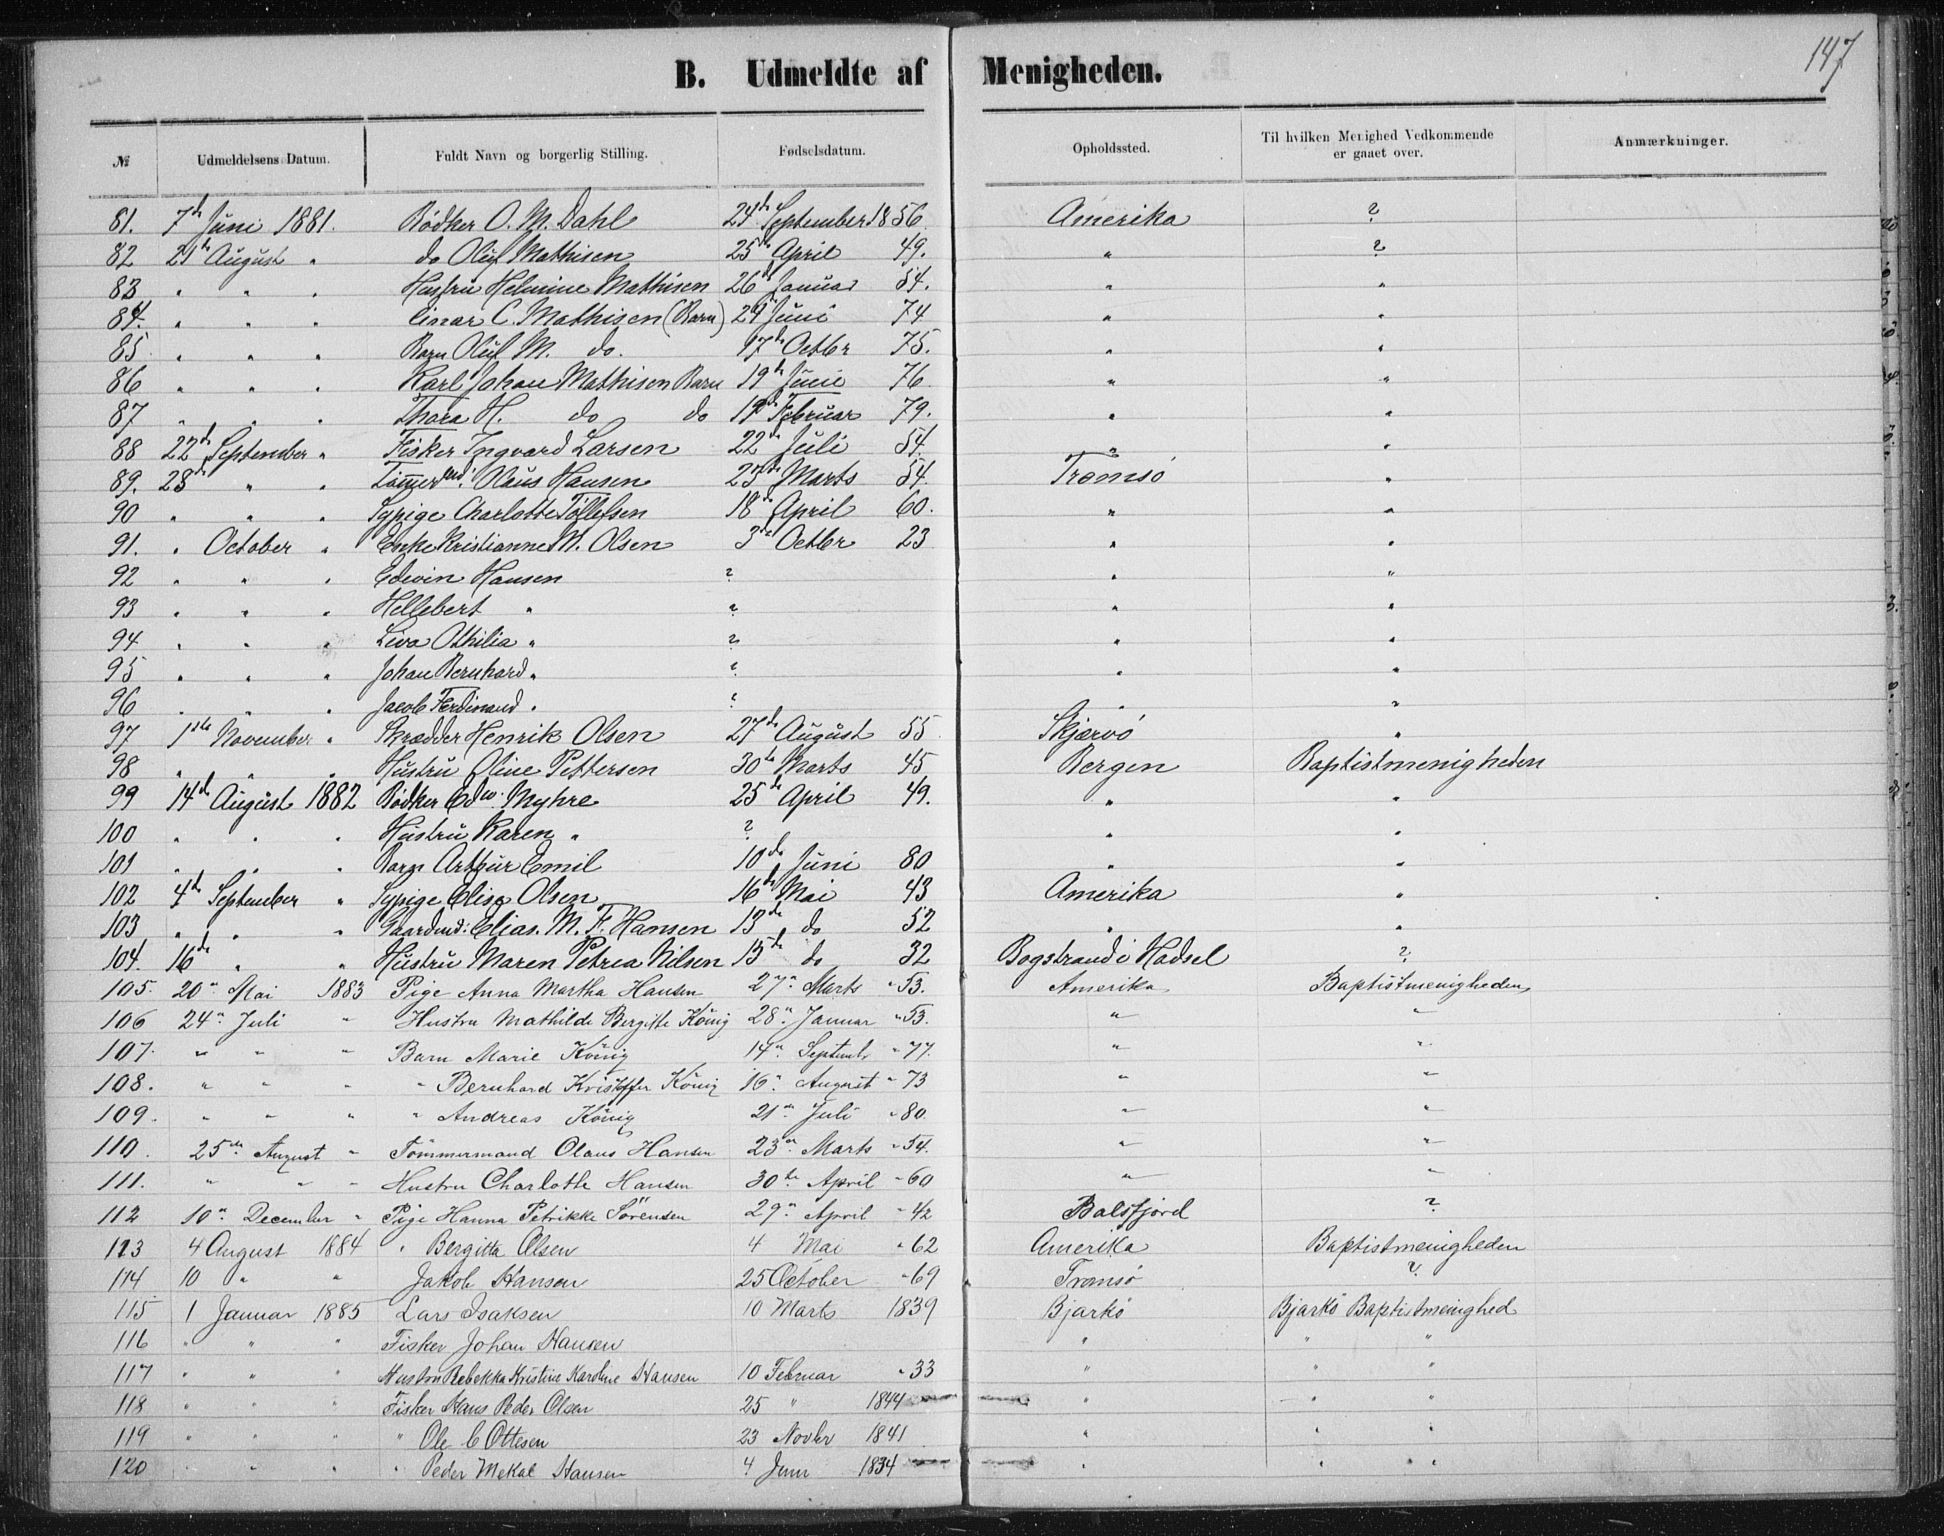 147
B. Udmeldte af Menigheden.
№ Udmeldelsens Datum. Fuldt Navn og borgerlig Stilling. Fødselsdatum. Opholdssted. Til hvilken Menighed Vedkommende er gaaet over. Anmærkninger.
81. 7de Juni 1881. Bødker O. M. Dahl 24de September 1856. Amerika ?
82 21de August " do Oluf Mathisen 25de April 49. " ?
83 " " " Hustru Helmine Mathisen 26de Januar 54. " "
84. " " " Einar C. Mathisen (Barn) 29 Juni 74 " "
85 " " " Barn Oluf M. do. 17de Octbr 75. " "
86 " " " Karl Johan Mathisen Barn 19de Juni 76. " "
87 " " " Thora H. do do 19de Februar 79. " "
88 22de September " Fisker Ingvard Larsen 22de Juli 54. " "
89. 28de " " Tømmermd: Olaus Hansen 23de Marts 54. Tromsö "
90 " " " Sypige Charlotte Tøllefsen 18de April 60. " "
91. " October " Enke Kristianne M. Olsen 3de Octbr 23 " "
92 " " " Edvin Hansen ? " "
93 " " " Hellebert " ? " "
94 " " " Liva Othilia " ? " "
95 " " " Johan Bernhard " ? " "
96 " " " Jacob Ferdinand " ? " "
97 1ste November " Skrædder Henrik Olsen 27de August 55. Skjervö "
98 " " " Hustru Oline Pettersen 30te Marts 45 Bergen Baptistmenigheden
99 14de August 1882 Bødker Edw. Myhre 25de April 49. " "
100 " " " Hustru Karen " ? " "
101 " " " Barn Arthur Emil 10de Juni 80 " "
102 4de September " Sypige Elise Olsen 16de Mai 43 Amerika "
103 " " " Gaardmd: Elias. M. F. Hansen 13de do 52 " "
104. 16de " " Hustru Maren Petrea Nilsen 15de do 32 Bogstrand i Hadsel ?
105. 20de Mai 1883 Pige Anna Martha Hansen 27de Marts " 53. Amerika Baptistmenigheden
106 24de Juli " Hustru Mathilde Bergitte König 28de Januar " 53. " "
107. " " " Barn Marie König 14de Septembr " 77. " "
108. " " " " Bernhard Kristoffer König 16de August " 73 " "
109. " " " " Andreas König 21de Juli " 80. " "
110. 25de August " Tömmermand Olaus Hansen 23de Marts " 54. " "
111. " " " Hustru Charlotte Hansen 30te April " 60 " "
112 10de December " Pige Hanna Petrikke Sörensen 29de April " 42 Balsfjord ?
113 4 August 1884 " Bergitta Olsen 4 Mai " 62 Amerika Baptistmenigheden
114 10 " " Jakob Hansen 25 October " 69 Tromsö ?
115 1 Januar 1885 Lars Isaksen 10 Marts 1839 Bjarkö Bjarkö Baptistmenighed
116 " " " Fisker Johan Hansen " " "
117 " " " Hustru Rebekka Kristine Karoline Hansen 10 Februar " 33 " " "
118 " " " Fisker Hans Peder Olsen 25 " 1844 " " "
119 " " " " Ole C Ottesen 23 Novbr 1841 " " "
120 " " " " Peder Mekal Hansen 4 Juni 1834 " " "